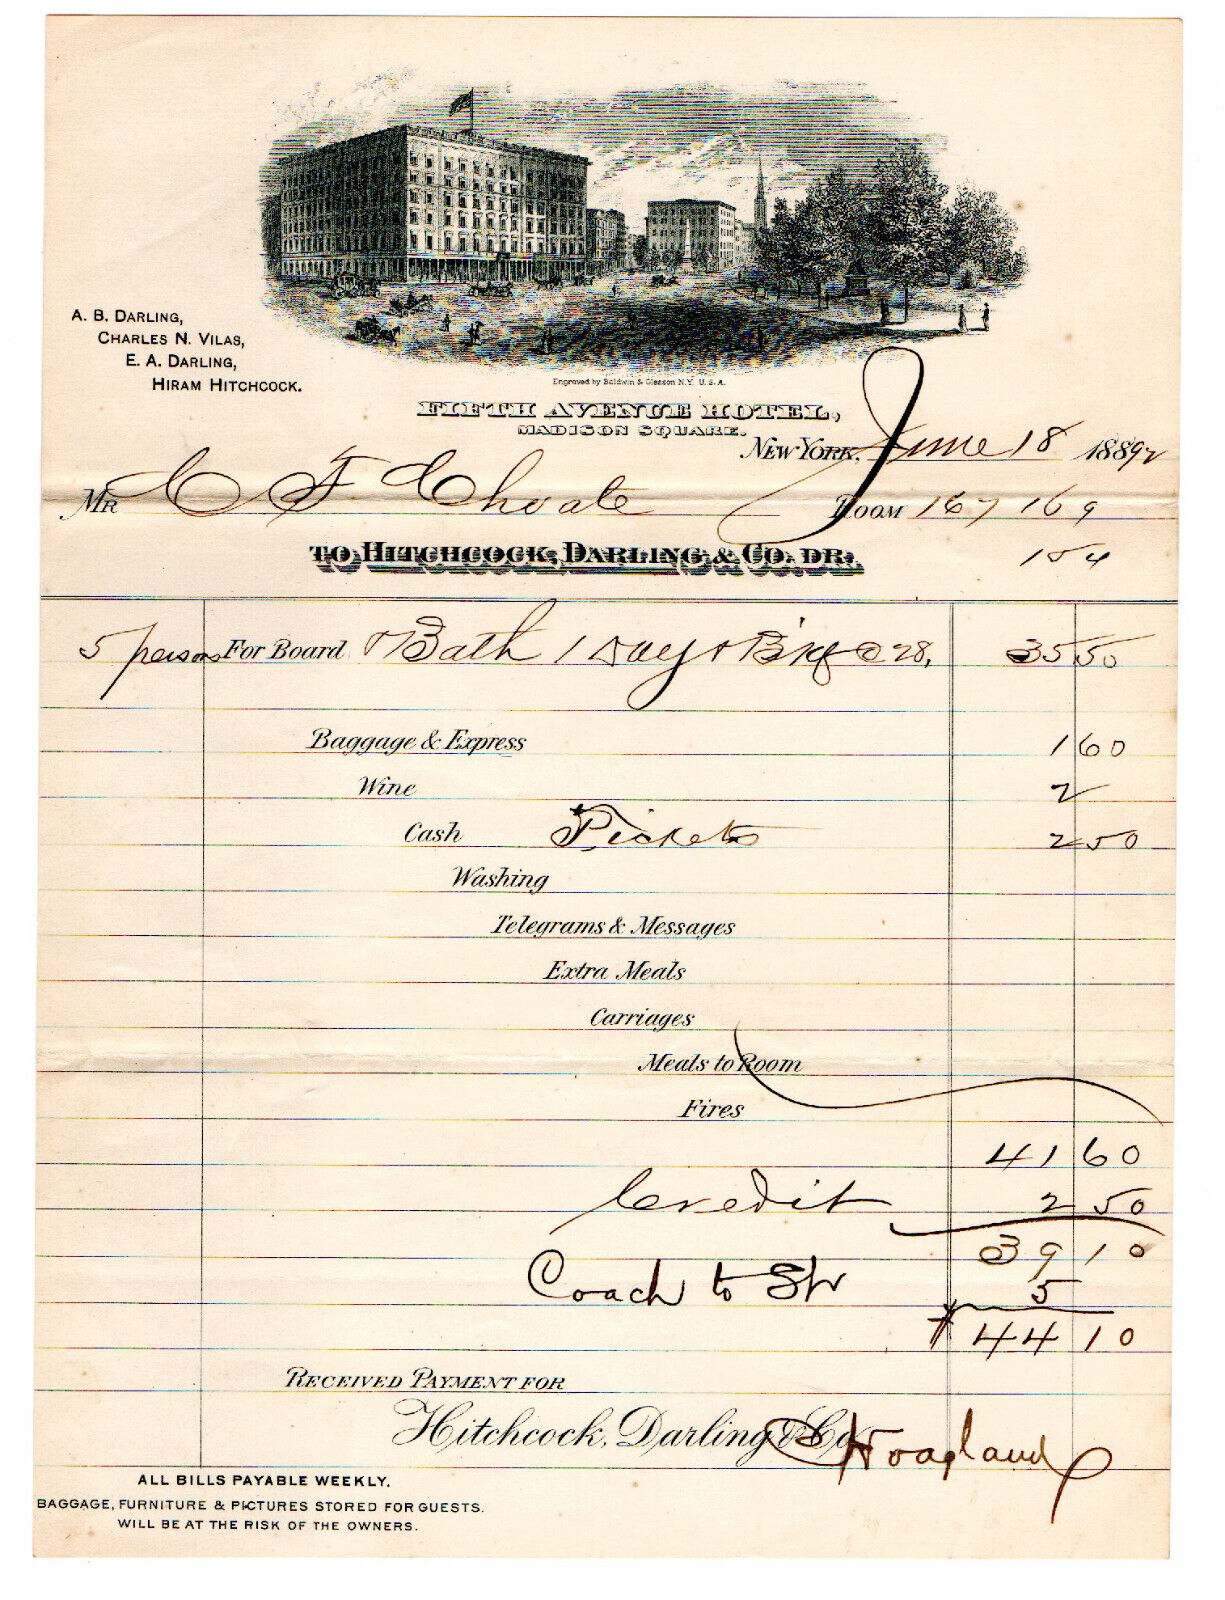 A. B. DARLING,
CHARLES N. VILAS,
E. A. DARLING,
HIRAM HITCHCOCK.
Engraved by Baldwin & Gleason N.Y. U.S.A.
FIFTH AVENUE HOTEL,
MADISON SQUARE.
NEW YORK, June 18 1889
MR C F Choate ROOM 167 169
154
TO HITCHCOCK, DARLING & CO. DR.
5 persons For Board & Bath 1 Day & Bkf @ 28, 35 50
Baggage & Express 1 60
Wine 2
Cash Tickets 2 50
Washing
Telegrams & Messages
Extra Meals
Carriages
Meals to Room
Fires
41 60
Credit 2 50
39 10
Coach to Str 5
$ 44 10
RECEIVED PAYMENT FOR
Hitchcock, Darling & Co.
Hoagland
ALL BILLS PAYABLE WEEKLY.
BAGGAGE, FURNITURE & PICTURES STORED FOR GUESTS.
WILL BE AT THE RISK OF THE OWNERS.